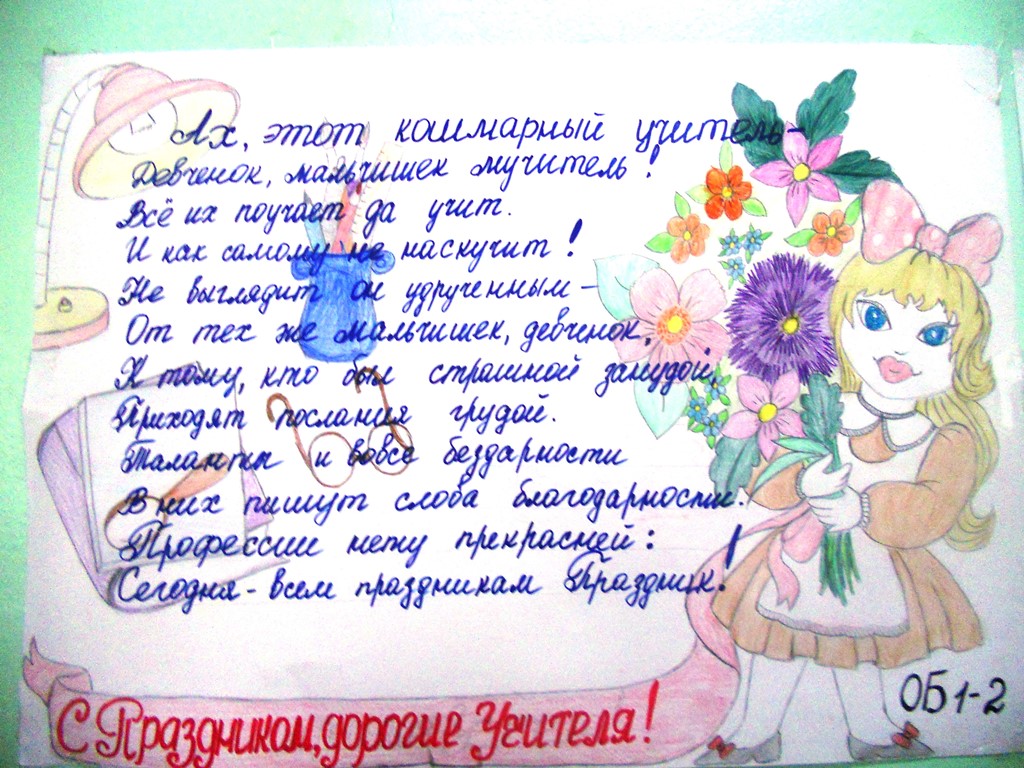 Ах, этот кошмарный учитель-
Девченок, мальчишек мучитель!
Всё их поучает да учит.
И как самому не наскучит!
Не выглядит он удрученным -
От тех же мальчишек, девченок,
К тому, кто был страшной занудой,
Приходят послания грудой.
Таланты и вовсе бездарности
В них пишут слова благодарности.
Профессии нету прекрасней:
Сегодня - всем праздникам Праздник!
С Праздником, дорогие Учителя!
ОБ 1-2